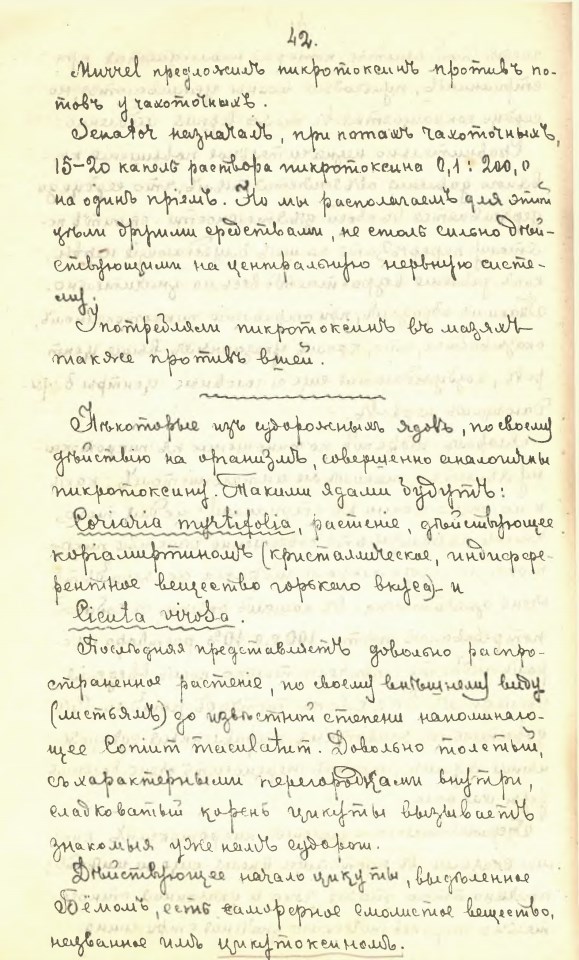 42.
Murrel предложилъ пикротоксинъ противъ по-
товъ у чахоточныхъ.
Senator назначалъ, при потахъ чахоточныхъ,
15–20 капель раствора пикротоксина 0,1 : 200,0
на одинъ пріемъ. Но мы располагаемъ для этой
цѣли другими средствами, не столь сильно дѣй-
ствующими на центральную нервную систе-
му.
Употребляли пикротоксинъ въ мазяхъ
также противъ вшей.
Нѣкоторые изъ судорожныхъ ядовъ, по своему
дѣйствію на организмъ, совершенно аналогичны
пикротоксину. Такими ядами будутъ:
Coriaria myrtifolia, растеніе, дѣйствующее
коріамиртиномъ (кристаллическое, индиффе-
рентное вещество горькаго вкуса) – и
Cicuta virosa.
Послѣдняя представляетъ довольно распро-
страненное растеніе, по своему внѣшнему виду
(листьямъ) до извѣстной степени напоминаю-
щее Conium maculatum. Довольно толстый,
съ характерными перегородками внутри,
сладковатый корень цикуты вызываетъ
знакомыя уже намъ судороги.
Дѣйствующее начало цикуты, выдѣленное
Бёмомъ, есть аморфное смолистое вещество,
названное имъ цикутоксиномъ.